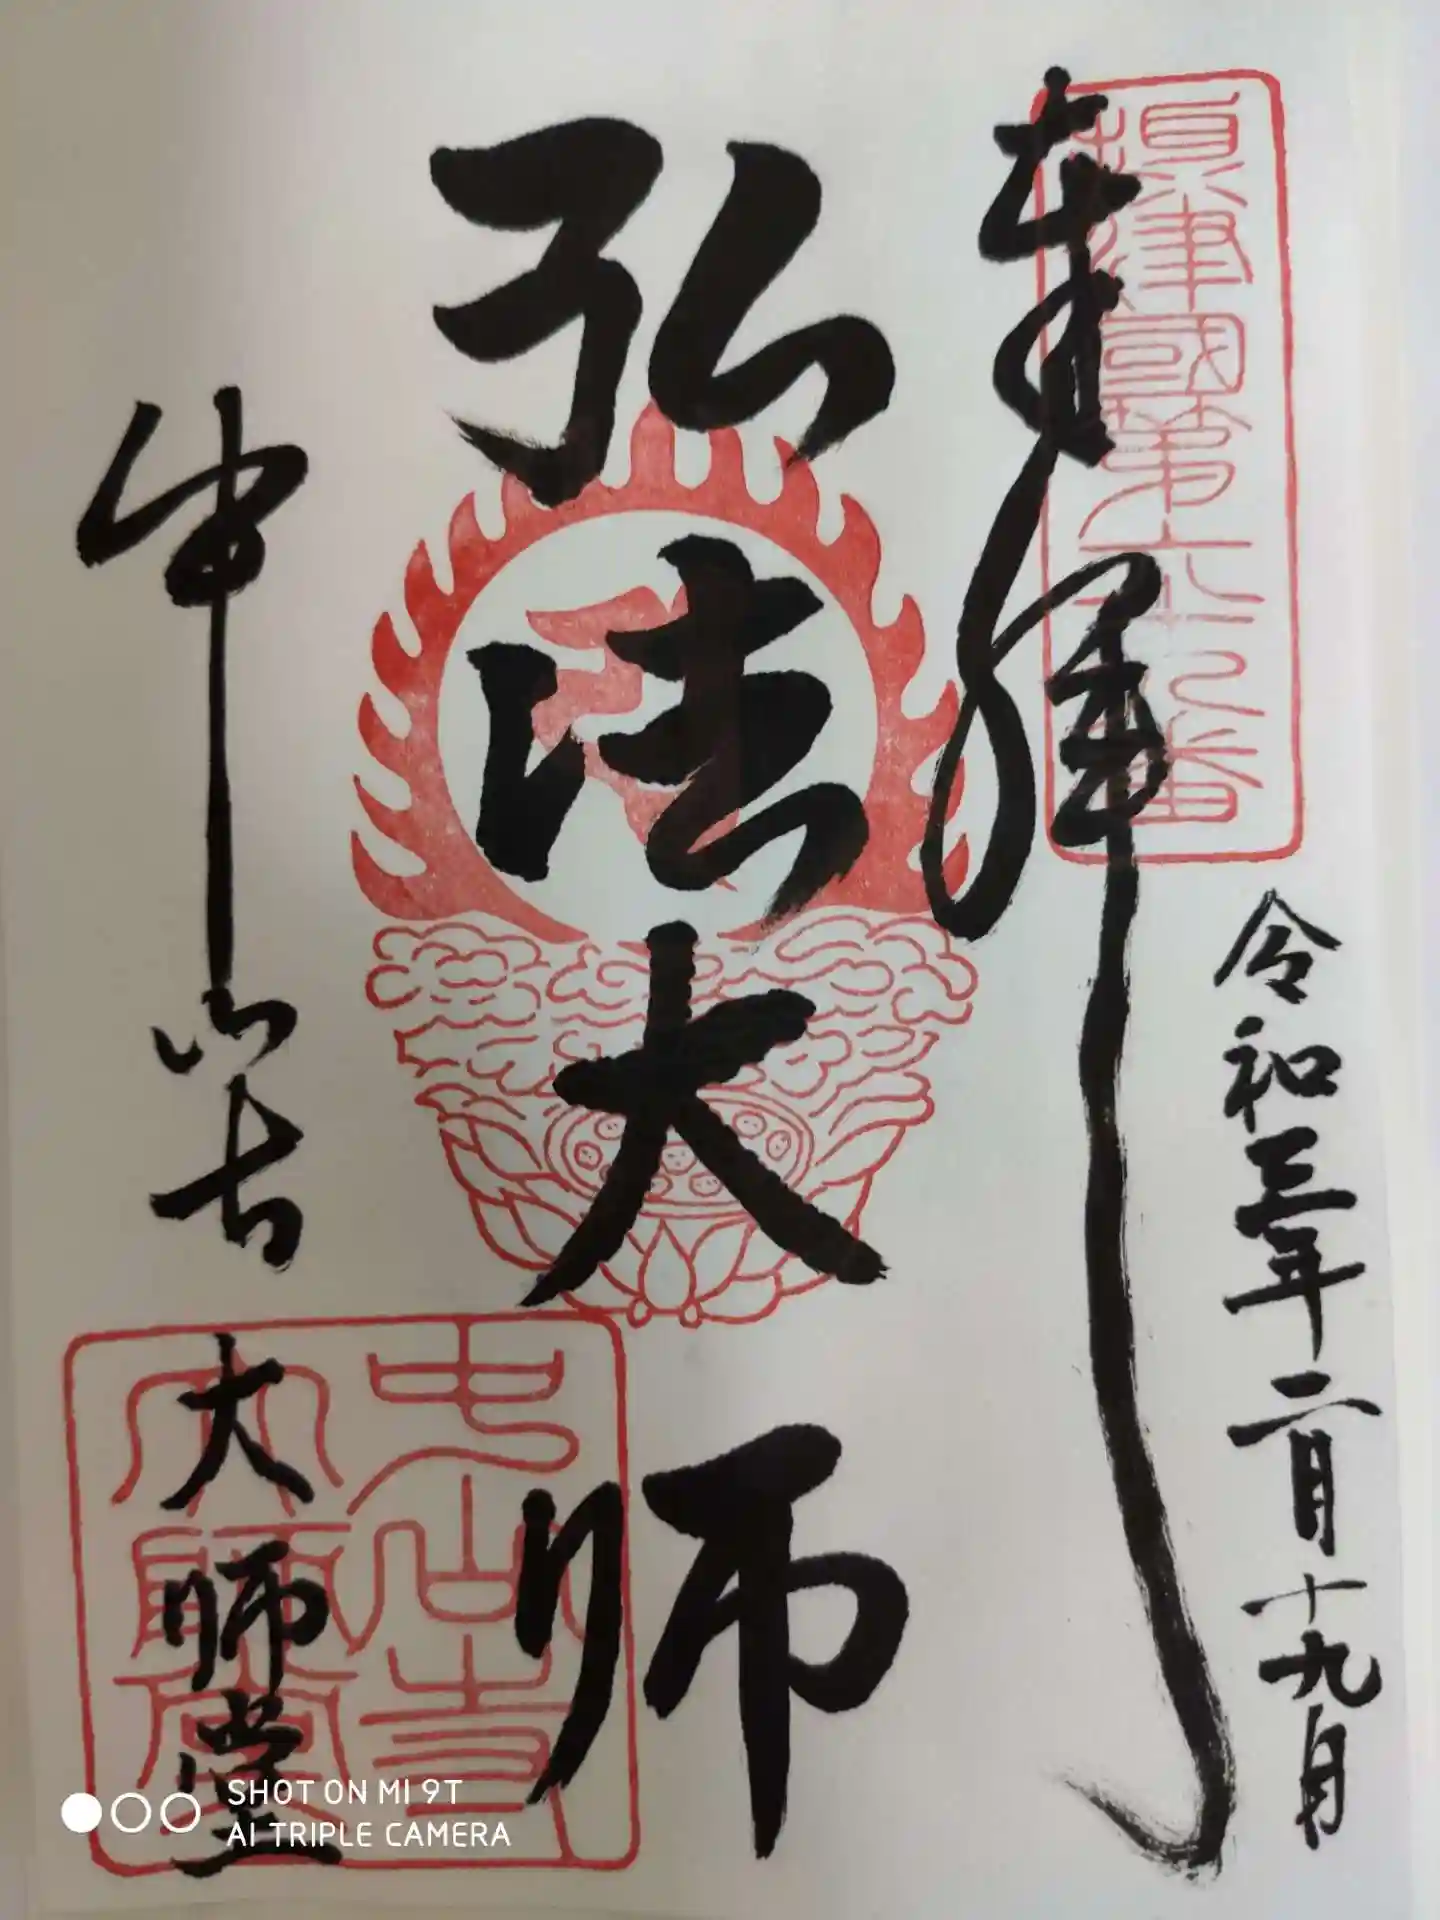 奉拝
攝津國第六十九番
令和三年二月十九日
弘法大師
中山寺
大師堂
中山寺
大師堂
SHOT ON MI 9T
AI TRIPLE CAMERA